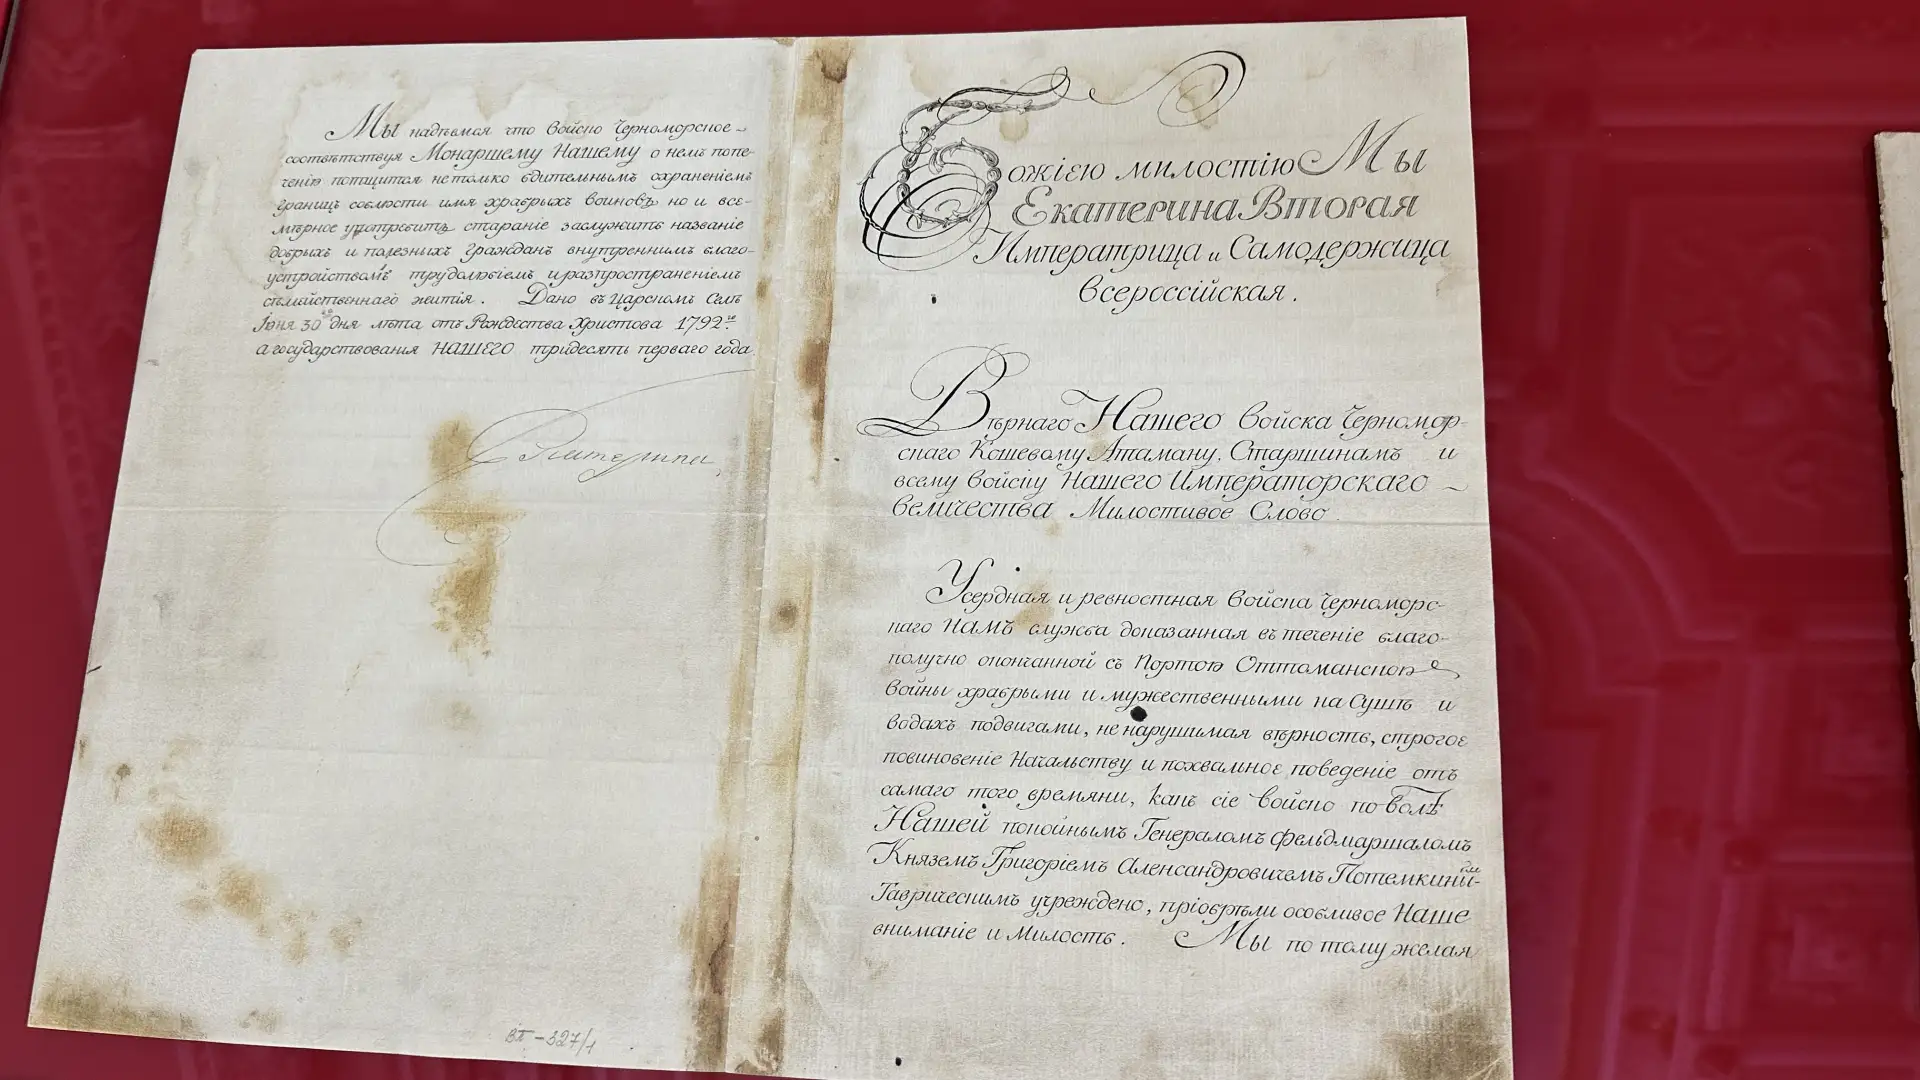 Мы надѣемся что войско Черноморское
соотвѣтствуя Монаршему Нашему о немъ попе-
ченію потщится не только бдительнымъ охраненіемъ
границъ соблюсти имя храбрыхъ воиновъ но и все-
мѣрное употребить стараніе заслужить названіе
добрыхъ и полезныхъ гражданъ внутреннимъ благо-
устройствомъ трудолюбіемъ и распространеніемъ
сѣмейственнаго житія. Дано въ Царскомъ Селѣ
Іюня 30 дня лѣта отъ Рождества Христова 1792го
а государствованія НАШЕГО тридесять перваго года
Екатерина
ВП-327/1
Божіею милостію Мы
Екатерина Вторая
Императрица и Самодержица
всероссійская.
Вѣрнаго Нашего войска Черномор-
скаго Кошевому Атаману, Старшинамъ и
всему войску Нашего Императорскаго
величества Милостивое Слово.
Усердная и ревностная войска Черноморс-
каго НАМЪ служба доказанная въ теченіе благо-
получно оконченной съ Портою Оттоманскою
войны храбрыми и мужественными на Сушѣ и
водахъ подвигами, не нарушимая вѣрность, строгое
повиновеніе Начальству и похвальное поведеніе отъ
самаго того времяни, какъ сіе войско по волѣ
Нашей покойнымъ Генераломъ фельдмаршаломъ
Княземъ Григоріемъ Александровичемъ Потемкинымъ-
Таврическимъ учреждено, пріобрѣли особливое Наше
вниманіе и милость. Мы по тому желая